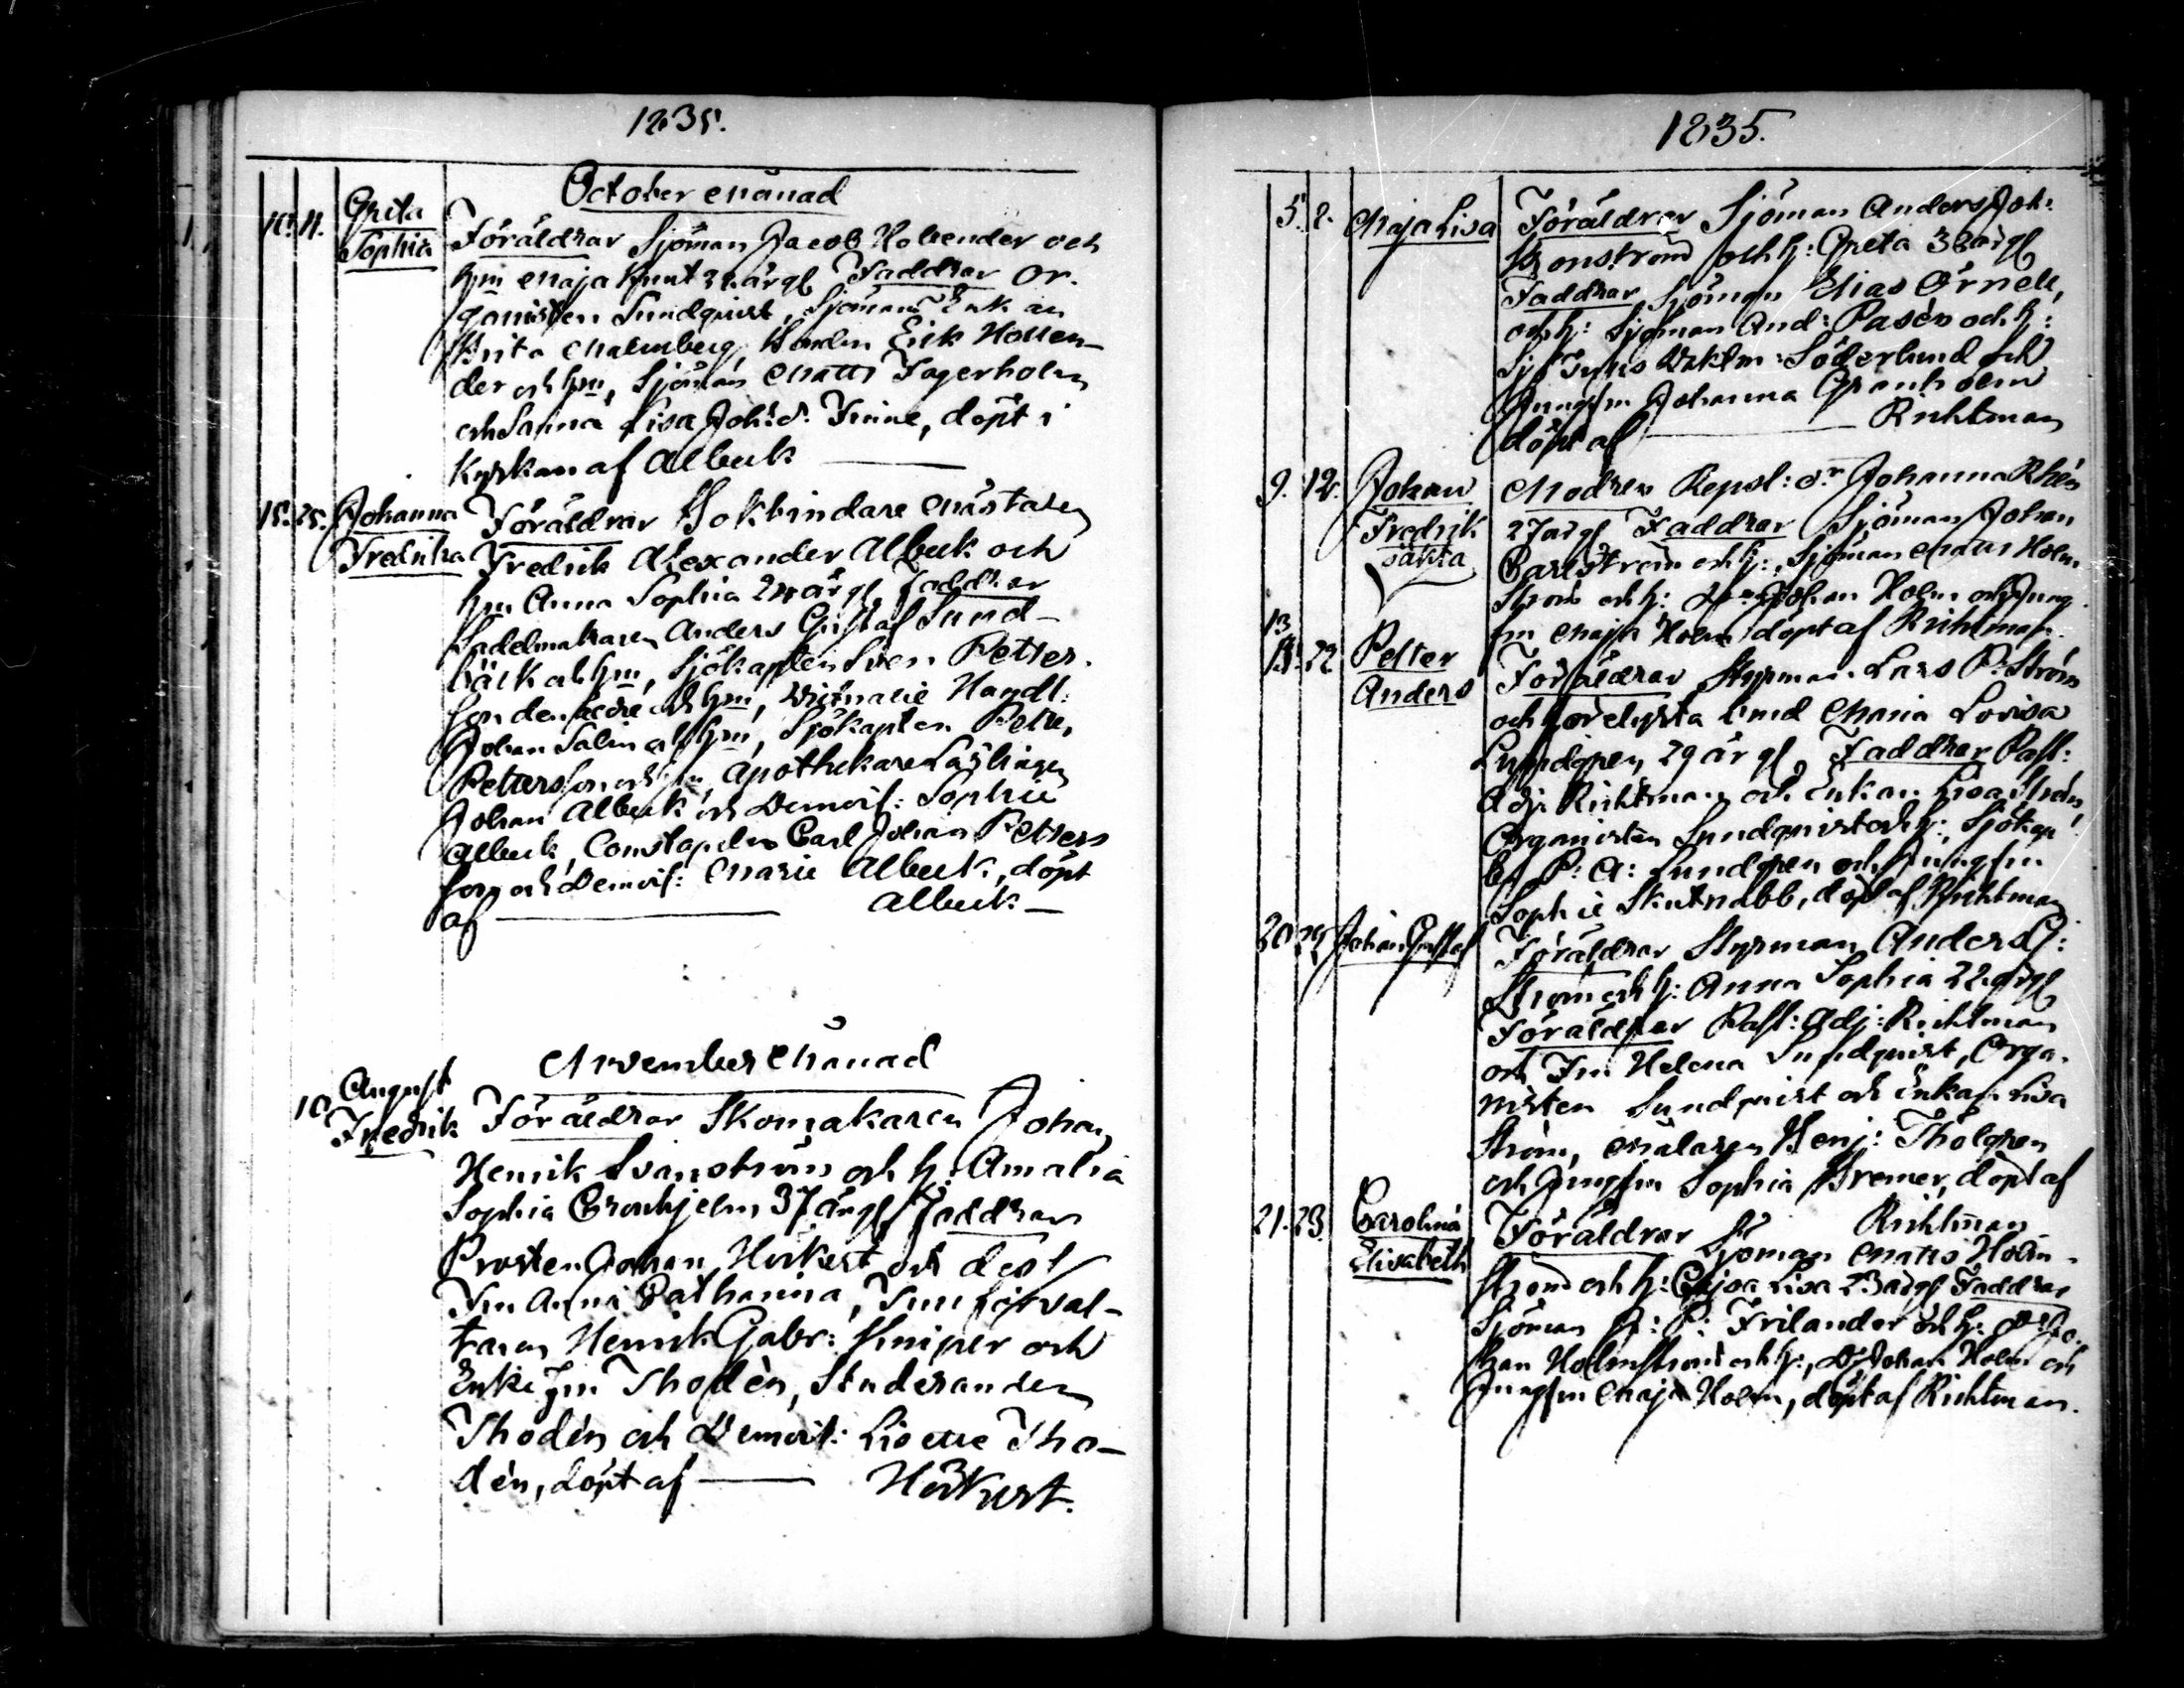 1835.
October Månad
10. 11. Greta Sophia
Föräldrar Sjöman Jacob Holender och
hm Maja Knut 32 årgl Faddrar Or-
ganisten Sundqvist, Sjömans Enkan
Brita Malmberg, Erik Hollen-
der och hm, Sjöman Matts Fagerholm
och Sanna Lisa Joh:s d: Finne, döpt i
Kyrkan af Albeck
15. 25. Johanna Fredrika
Föräldrar Bokbindare Mästaren
Fredrik Alexander Albeck och
hm Anna Sophia 24 årgl Faddrar
Sadelmakaren Anders Gustaf Sund-
bäck och hm, Sjökapten Sven Petters-
son den äldre och hm, Victualie Handl:
Johan Salin och hm, Sjökapten Petter
Pettersson och hm, Apothekare Lärlingen
Johan Albeck och Demois: Sophie
Albeck, Constapelen Carl Johan Petters
son och Demois: Marie Albeck, döpt
af — Albeck —
November Månad
10 August Fredrik
Föräldrar Skomakaren Johan
Henrik Svanström och h: Amalia
Sophia Cronhjelm 37 årgl Faddrar
Prosten Johan Hörkert och dess
Fru Anna Catharina,
Henrik Gabr: Kniper och
Enke Fru Thodén, Studeranden
Thodén och Demois: Lisette Tho-
dén, döpt af — Hörkert.
1835.
5. 8. Maja Lisa
Föräldrar Sjöman Anders Joh:
Bonström och h: Greta 38 årgl
Faddrar Sjöman Elias Örnell,
och h: Sjöman And: Pasén och h:
Söderlund och
Jungfru Johanna Granholm
döpt af — Richtman
9. 12. Johan Fredrik oäkta
Modren Repsl: dr Johanna Rhén
27 årgl Faddrar Sjöman Johan
Carlström och h:, Sjöman Matts Holm
ström och h: Johan Holm och Jung-
fru Maja Holm döpt af Richtman.
13
22 Petter Anders
Föräldrar Styrman Lars P: Ström
och Maria Lovisa
Lundgren, 29 årgl, Faddrar Past:
Adj: Richtman och Enkan Lisa Ström,
Organisten Sundqvist och h: Sjökap
P: A: Lundgren och Jungfru
Sophie Skutnabb, döpt af Richtman
20 25 Johan Gustaf
Föräldrar Styrman Anders G:
Ström och h: Anna Sophia 22 årgl
Föräldrar Past: Adj: Richtman
och Fru Helena Sundqvist, Orga-
nisten Sundqvist och Enkan Lisa
Ström, Målaren Benj: Tholgren
och Jungfru Sophia Bremer, döpt af
Richtman
21. 23. Carolina Elisabeth
Föräldrar Sjöman Matts Holm-
ström och h: Cajsa Lisa 23 årgl Faddrar
Sjöman Frilander och h: Jo-
han Holmström och h:, Dr Johan Holm och
Jungfru Maja Holm, döpt af Richtman.